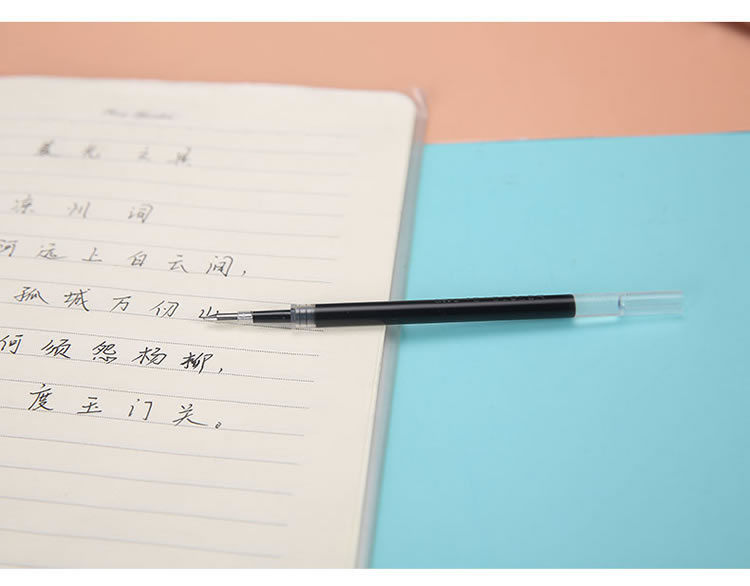 凉州词
河远上白云间，
孤城万仞山
何须怨杨柳，
度玉门关。